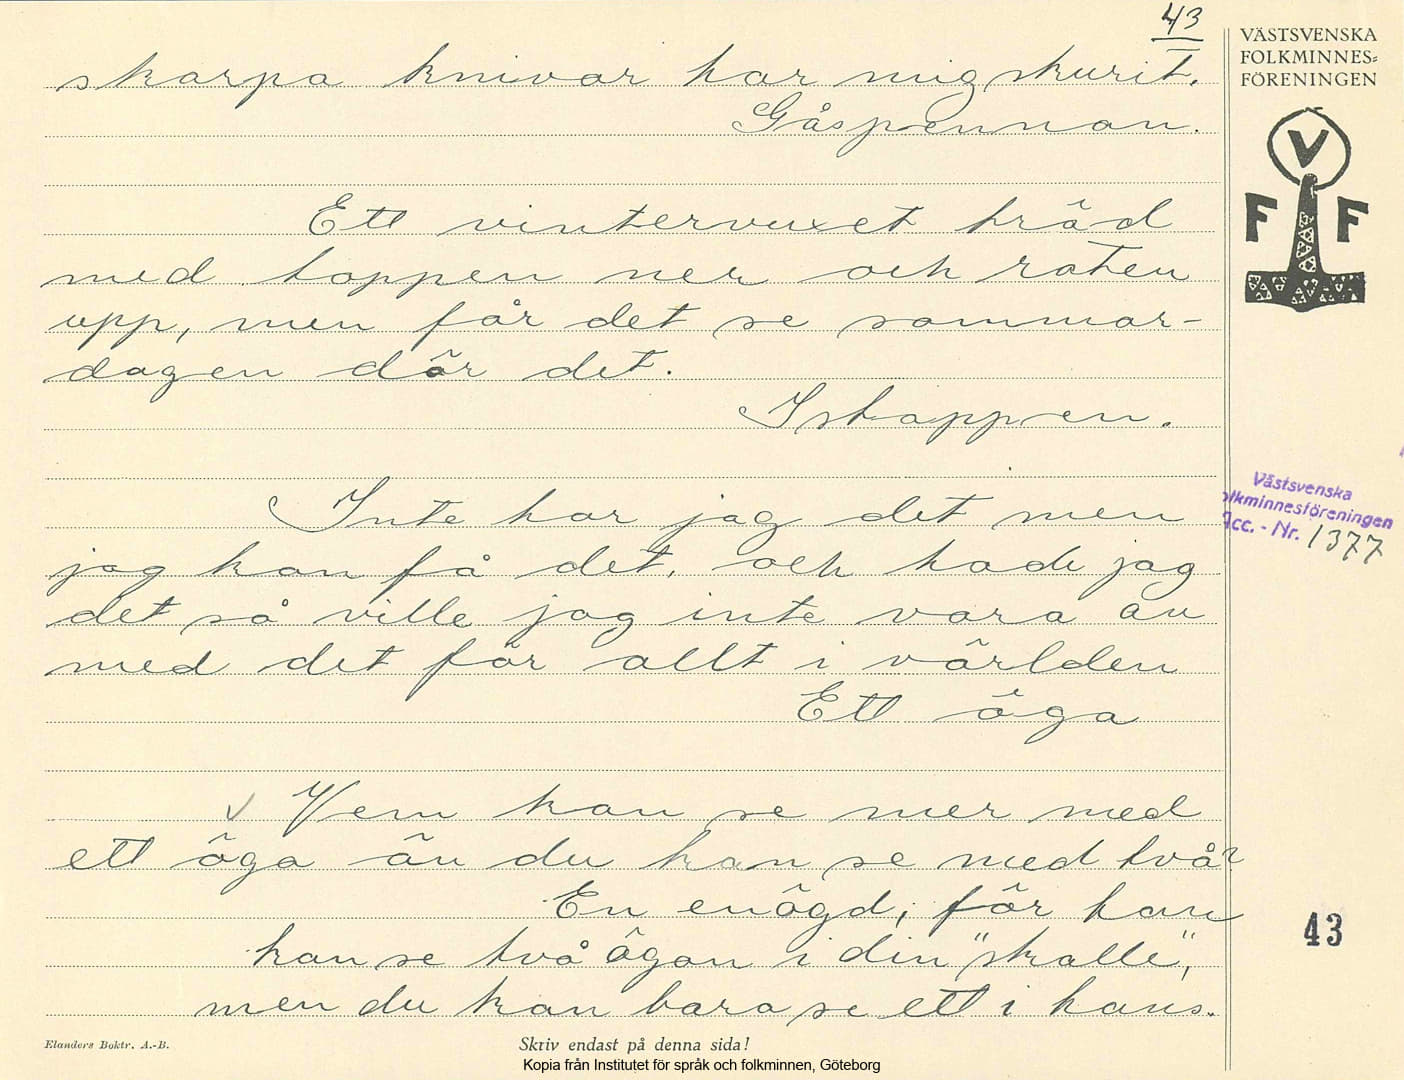 43
skarpa knivar har mig skurit.
Gåspennan.
Ett vintervuxet träd
med toppen ner och roten
upp, men får det se sommar-
dagen dör det.
Istappen.
Inte har jag det men
jag kan få det, och hade jag
det så ville jag inte vara au
med det för allt i världen
Ett öga
V Vem kan se mer med
ett öga än du kan se med två?
En enögd; för han
kan se två ögon i din "skalle",
men du kan bara se ett i hans.
Elanders Boktr. A.-B.
Skriv endast på denna sida!
Kopia från Institutet för språk och folkminnen, Göteborg
VÄSTSVENSKA
FOLKMINNES=
FÖRENINGEN
V
F F
Västsvenska
olkminnesföreningen
Acc. - Nr. 1377
43